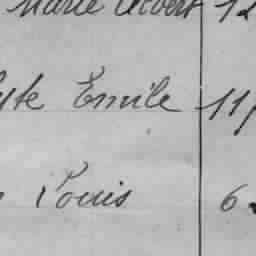 Marie Albert 12
yte Emile 11
Louis 6